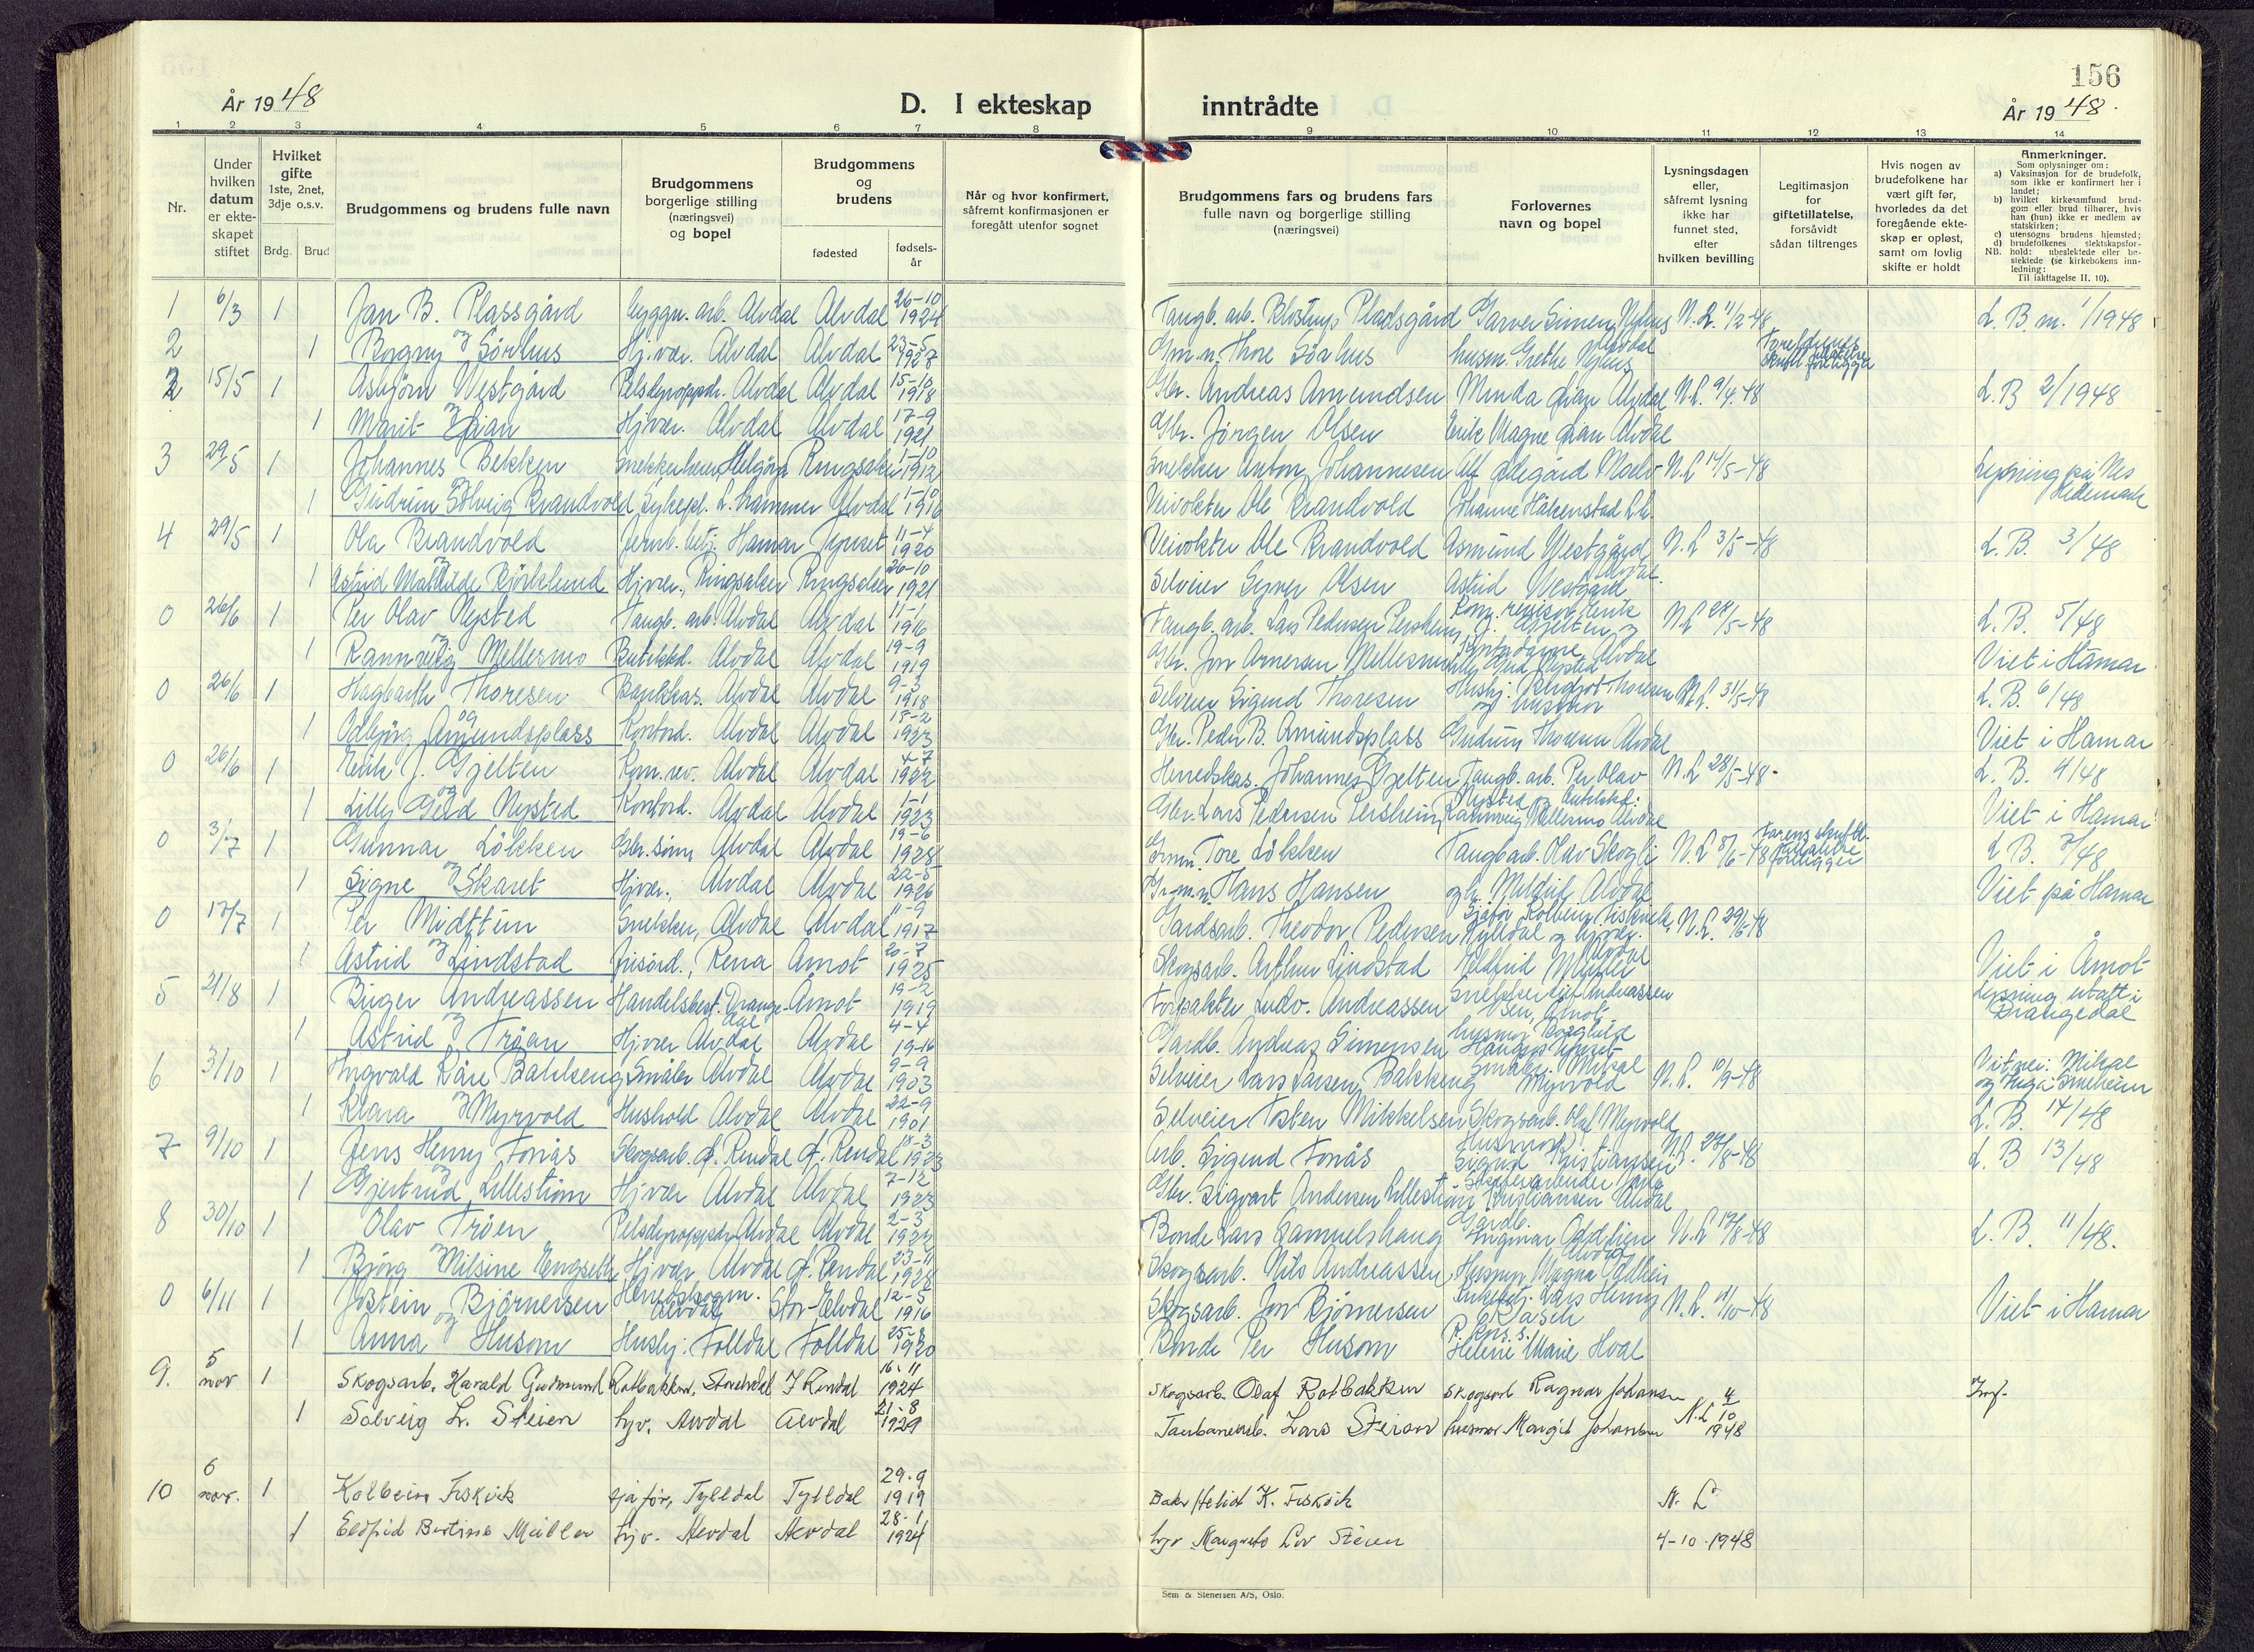 156
År 1948
D. I ekteskap
inntrådte
År 1948.
1 2 3 4 5 6 7 8 9 10 11 12 13 14
Nr.
Under hvilken datum er ekteskapet stiftet
Hvilket gifte 1ste, 2net, 3dje o.s.v.
Brdg. Brud
Brudgommens og brudens fulle navn
Brudgommens borgerlige stilling (næringsvei) og bopel
Brudgommens og brudens
fødested
fødselsår
Når og hvor konfirmert, såfremt konfirmasjonen er foregått utenfor sognet
Brudgommens fars og brudens fars fulle navn og borgerlige stilling (næringsvei)
Forlovernes navn og bopel
Lysningsdagen eller, såfremt lysning ikke har funnet sted, efter hvilken bevilling
Legitimasjon for giftetillatelse, forsåvidt sådan tiltrenges
Hvis nogen av brudefolkene har vært gift før, hvorledes da det foregående ekteskap er opløst, samt om lovlig skifte er holdt
Anmerkninger.
Som oplysninger om:
a) Vaksinasjon for de brudefolk, som ikke er konfirmert her i landet;
b) hvilket kirkesamfund brudgom eller brud tilhører, hvis han (hun) ikke er medlem av statskirken;
c) utensogns brudens hjemsted;
d) brudefolkenes slektskapsforhold: ubeslektede eller beslektede (se kirkebokens innledning:
NB. Til iakttagelse II. 10).
1 6/3 1 Jan B. Plassgård byggn. arb. Alvdal Alvdal 26-10 1924 Taugb. arb. Plads gård Garver Simen Nyhus N.L. 11/2-48 L.B. m. 1/1948
2 1 og Bogny Sörhus Hj.vær. Alvdal Alvdal 23-5 1927 Gm.n. Thore Sörhus husm. Grethe Nyhus Alvdal
2 15/5 1 Asbjörn Westgård Pelsdyroppdr. Alvdal Alvdal 15-10 1918 Gbr. Andreas Amundsen Minda Lian Alvdal N.L. 9/4-48 L.B 2/1948
1 Marit og Lian Hjvær. Alvdal Alvdal 17-9 1921 Gbr. Jörgen Olsen Eirik Magne Lian Alvdal
3 29/5 1 Johannes Bekken Snekker Helgöya Ringsaker 1-10 1912 Snekker Anton Johannesen Alf Ödegård Moelv N.L 14/5-48 Lysning på Nes Hedemark
1 Gudrun Solveig Brandvold Sykepl. L.hammer Alvdal 1-10 1916 Veivokter Ole Brandvold Johanne Håkenstad Lh.
4 29/5 1 Ola Brandvold Jernb. betj. Hamar Tynset 11-4 1920 Veivokter Ole Brandvold Asmund Westgård N.L 3/5-48 L.B. 3/48
1 Astrid Mathilde Björklund Hjvær., Ringsaker Ringsaker 26-10 1921 Selveier Olsen Astrid Westgård Alvdal.
0 26/6 1 Per Olav Nysted Taugb. arb. Alvdal Alvdal 11-1 1916 Taugb. arb. Lars Pedersen Persheim Kom. revisor Eirik J. Gjelten og N.L 28/5-48 L.B. 5/48
1 Rannveig og Mellesmo Butikkd. Alvdal Alvdal 19-9 1919 Gbr. Jon Arnersen Mellesmo Kontordame Lilly Gerd Nysted Alvdal Viet i Hamar
0 26/6 1 Hagbarth Thoresen Bankkas. Alvdal Alvdal 9-3 1918 Selveier Sigurd Thoresen Hushj: Thoresen og husmor N.L. 31/5-48 L.B. 6/48
1 Odbjörg og Amundsplass Kontord. Alvdal Alvdal 15-2 1923 Gbr. Peder B. Amundsplass Gudrun Thoresen Alvdal Viet i Hamar
0 26/6 1 Eirik J. Gjelten Kom. rev. Alvdal Alvdal 4-7 1922 Herredskas. Johannes Gjelten Taugb. arb. Per Olav N.L 28/5-48 L.B. 4/48
1 Lilly og Gerd Nysted Kontord. Alvdal Alvdal 1-1 1923 Gbr. Lars Pedersen Persheim Nysted og butikkd: Rannveig Mellesmo Alvdal Viet i Hamar
0 3/7 1 Gunnar Lökken Gbr. sönn Alvdal Alvdal 19-6 1928 Gmn. Tore Lökken Taugb arb. Olav Skogli N.L 8/6-48 Farens skriftl. tillatelse foreligger L B. 7/48
1 Signe og Skaret Hjvær. Alvdal Alvdal 22-5 1926 Gr-m.n. Hans Hansen og h. Alvdal Viet på Hamar
0 17/7 1 Per Midttun Snekker, Alvdal Alvdal 11-9 1917 Gardsarb. Theodor Pedersen Sjåför Kolbein Fiskvik Tylldal og hjvær. N.L. 29/6-48
1 Astrid og Lindstad frisörd., Rena Åmot 20-7 1925 Skogsarb. Arthur Lindstad Eldfrid Müller Alvdal Viet i Åmot
5 21/8 1 Birger Andreassen Handelsbest. Drangedal Åmot 19-2 1919 Forpakter Ludv. Andreassen Snekker Andreassen Åmot Lysning utatt i Drangedal
1 Astrid og Tröan Hjvær Alvdal Alvdal 4-4 1916 Gardb. Andreas Simensen husmor Borghild
6 3/10 1 Ingvald Kåre Bakkeng Småbr Alvdal Alvdal 9-9 1903 Selveier Lars Larsen Bakkeng Småbr. Mikal Myrvold N.L. 10/9-48 Vitner: Mikal og
1 Klara og Myrvold Hushold Alvdal Alvdal 22-9 1901 Selveier Tosten Mikkelsen Skogsarb. Olaf Myrvold L.B. 14/48
7 9/10 1 Jens Henry Fonås Skogsarb. Y. Rendal Y. Rendal 18-3 1923 Arb. Sigurd Fonås Husmor Sigrid Kristiansen N.L. 27/8-48 L.B 13/48
1 Gjertrud og Lilleström Hjvær Alvdal Alvdal 7-12 1923 Gbr. Sigvart Andersen Lilleström Kristiansen Alvdal
8 30/10 1 Olav Tröen Pelsdyroppdr. Alvdal Alvdal 2-3 1922 Bonde Lars Samuelshaug Gardb. Ingmar Oddlien Alvdal N.L 17/8-48 L.B. 11/48.
1 Björg og Milsine Engseth Hjvær Alvdal Y. Rendal 23-11 1928 Skogsarb. Nils Andreassen Husmor Magna
0 6/11 1 Jostein Björnersen Herredskogm. Alvdal Stor-Elvdal 12-5 1916 Skogsarb. Jon Björnersen Lars Henry Rasch N.L. 11/10-48 Viet i Hamar
1 og Anna Husom Hushj: Folldal Folldal 25-8 1920 Bonde Per Husom Helene Marie Hoal
9. 5 nov 1 Skogsarb. Harald Gudmund Rotbakken, Storelvdal Y Rendal 16-11 1924 Skogsarb. Olaf Rotbakken Skogsarb Ragnar Johansen N.L 4/10 1948
1 Solveig L. Steien hjv. Alvdal Alvdal 21-8 1929 Taubanearb. Lars Steien husmor Margit Johansen
10 6 nov. 1 Kolbein Fiskvik sjåför, Tylldal Tylldal 29-9 1919 Baker K. Fiskvik N. L
1 Eldfrid Bertine Müller hjv. Alvdal Alvdal 28-1 1924 hjv Steien 4-10-1948
Sem & Stenersen A/S, Oslo.